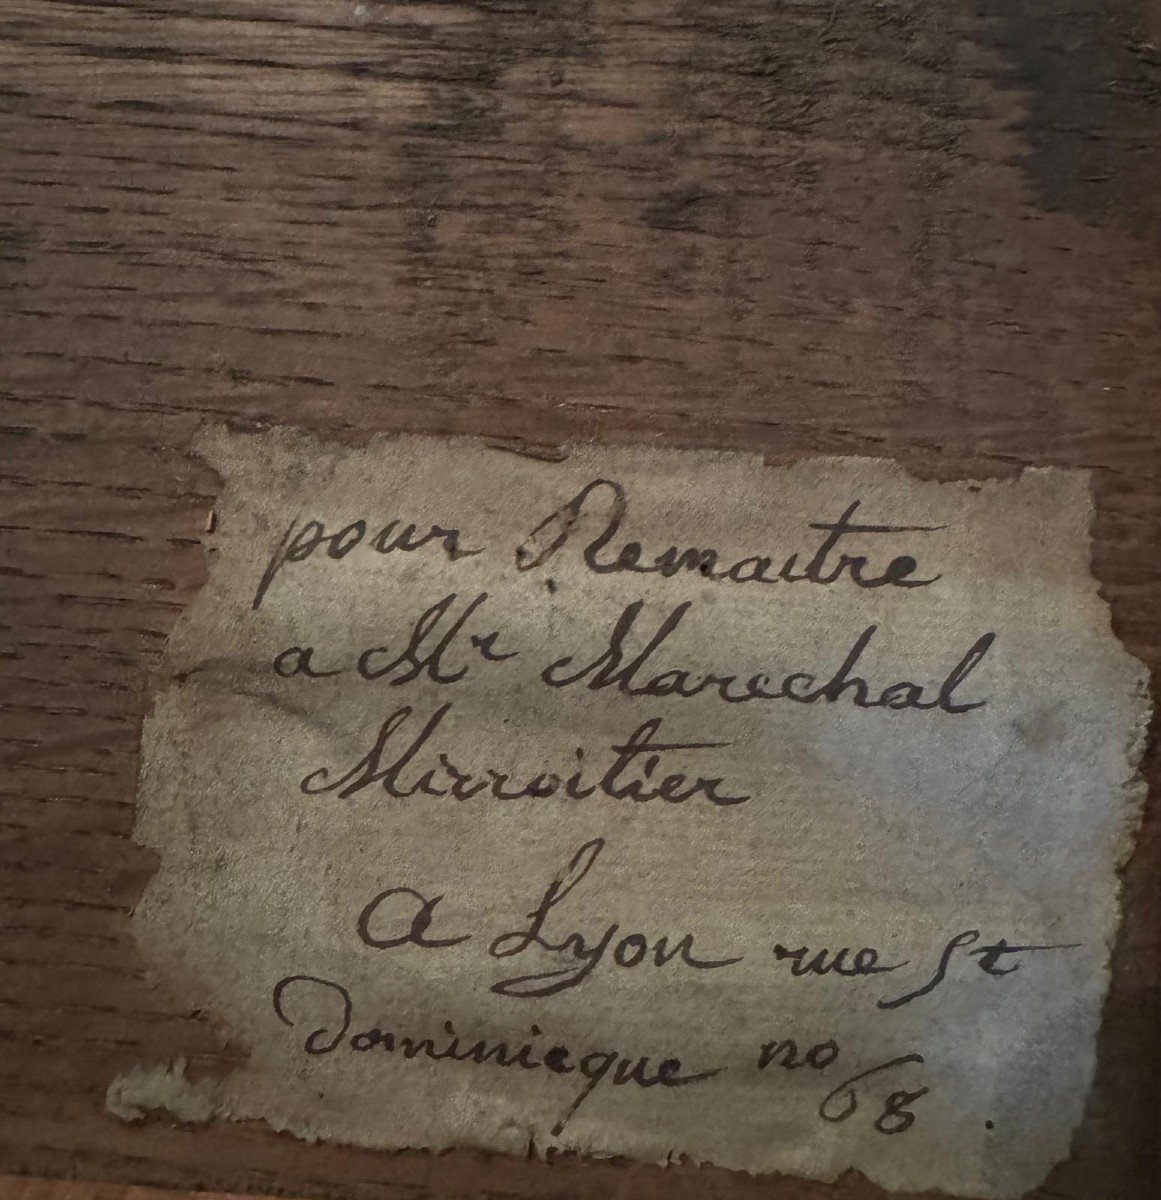 pour Remaitre
a Mr Marechal
Mirroitier
A Lyon rue St
Dominicque no 68.